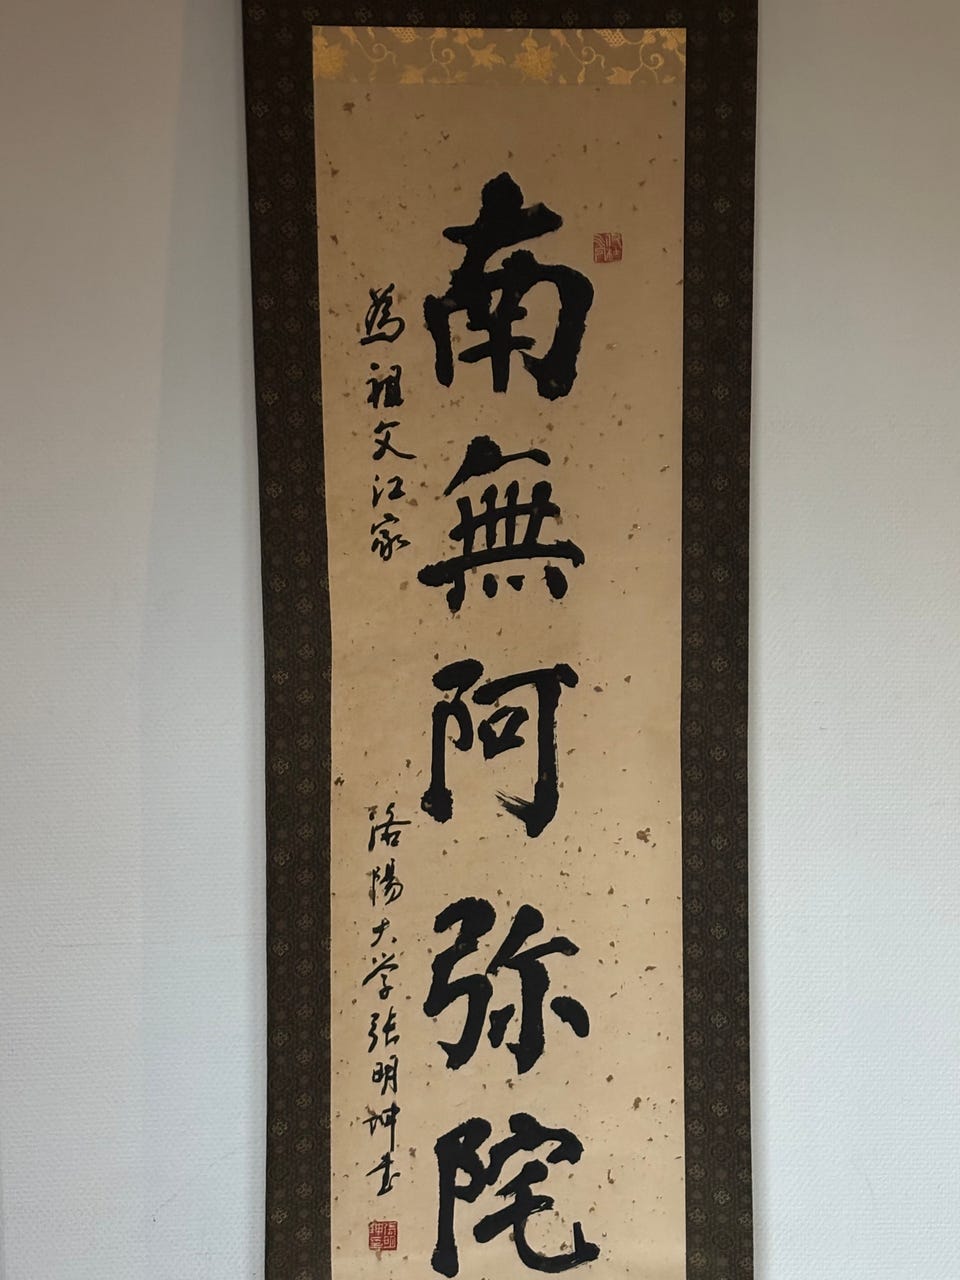 南無阿弥陀
為祖文江家
洛陽大学張明坤书